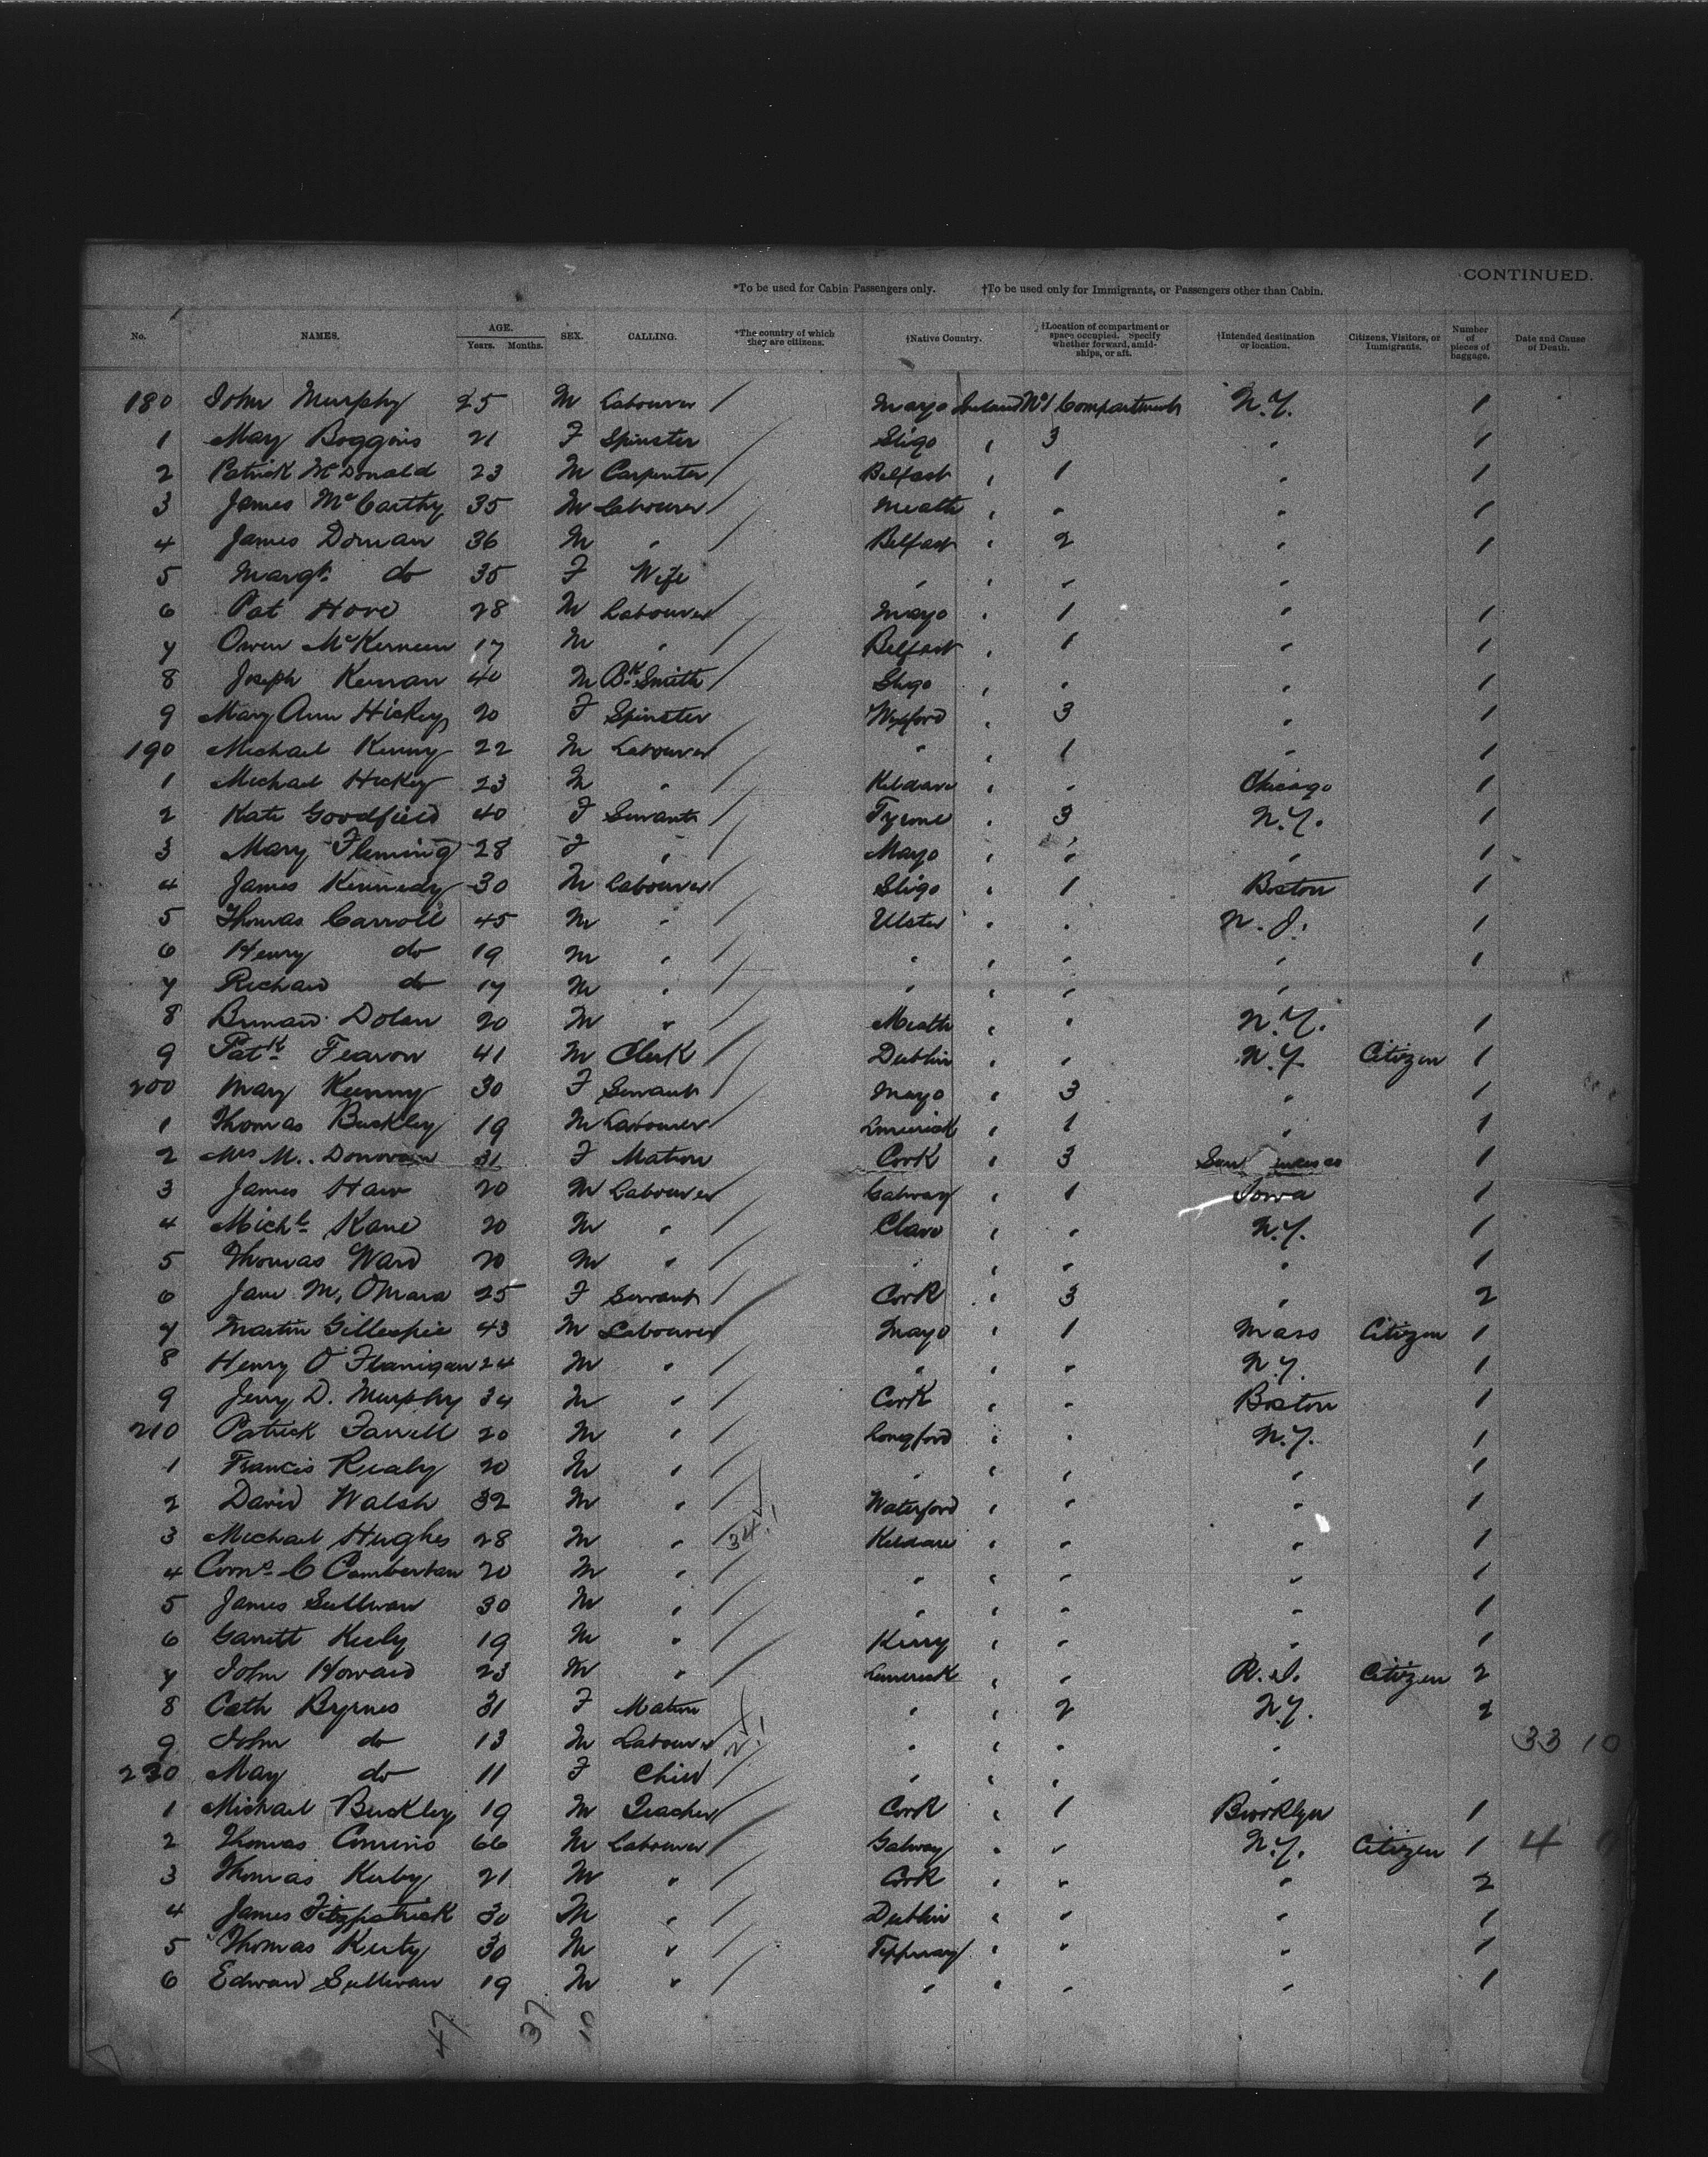 CONTINUED.
*To be used for Cabin Passengers only. †To be used only for Immigrants, or Passengers other than Cabin.
No. NAMES. AGE. Years. Months. SEX. CALLING. *The country of which they are citizens. †Native Country. †Location of compartment or space occupied. Specify whether forward, amidships, or aft. †Intended destination or location. Citizens, Visitors, or Immigrants. Number of pieces of baggage. Date and Cause of Death.
180 John Murphy 25 M Labourer / Mayo Ireland No 1 Compartment N.Y. 1
1 May Boggins 21 F Spinster / Sligo " 3 " 1
2 Patrick McDonald 23 M Carpenter / Belfast " 1 " 1
3 James McCarthy 35 M Labourer / Meath " " " 1
4 James Dornan 36 M " / Belfast " 2 " 1
5 Margt. do 35 F Wife " " " "
6 Pat Hore 28 M Labourer / Mayo " 1 " 1
7 Owen McKerneen 17 M " / Belfast " 1 " 1
8 Joseph Kernan 40 M Bk. Smith / Sligo " " " 1
9 Mary Ann Hickey 20 F Spinster Wexford " 3 " 1
190 Michael Kenny 22 M Labourer / " " 1 " 1
1 Michael Hickey 23 M " / Kildare " " Chicago 1
2 Kate Goodfield 40 F Servant / Tyrone " 3 N.Y. 1
3 Mary Fleming 28 F " / Mayo " " " 1
4 James Kennedy 30 M Labourer / Sligo " 1 Boston 1
5 Thomas Carroll 45 M " / Ulster " " N.J. 1
6 Henry do 19 M " / " " " " 1
7 Richard do 17 M " / " " " "
8 Bernard Dolan 20 M " / Meath " " N.Y. 1
9 Patk. Fearon 41 M Clerk / Dublin " " N.Y. Citizen 1
200 Mary Kenny 30 F Servant / Mayo " 3 " 1
1 Thomas Buckley 19 M Labourer / Limerick " 1 " 1
2 Mrs M. Donovan 31 F Matron / Cork " 3 San 1
3 James Haw 20 M Labourer / Galway " 1 Iowa 1
4 Michl. Kane 20 M " / Clare " " N.Y. 1
5 Thomas Ward 20 M " / " " " " 1
6 Jane M. OMara 25 F Servant / Cork " 3 " 2
7 Martin Gillespie 43 M Labourer / Mayo " 1 Mass Citizen 1
8 Henry O'Flanigan 24 M " / " " " N.Y. 1
9 Jerry D. Murphy 34 M " / Cork " " Boston 1
210 Patrick Farrell 20 M " / Longford " " N.Y. 1
1 Francis Realy 20 M " / " " " " 1
2 David Walsh 32 M " / Waterford " " " 1
3 Michael Hughes 28 M " 34 Kildare " " " 1
4 Corns. C Comberton 20 M " / " " " " 1
5 James Sullivan 30 M " / " " " " 1
6 Garrett Keely 19 M " / Kerry " " " 1
7 John Howard 23 M " / Limerick " " R.I. Citizen 2
8 Cath Byrnes 31 F Matron " " 2 N.Y. 2
9 John do 13 M Labourer 2 " " " " 33 10
220 May do 11 F Child / " " " "
1 Michael Buckley 19 M Teacher / Cork " 1 Brooklyn 1
2 Thomas Comins 66 M Labourer / Galway " " N.Y. Citizen 1 4
3 Thomas Kirby 21 M " / Cork " " " 2
4 James Fitzpatrick 30 M " / Dublin " " " 1
5 Thomas Keity 30 M " / Tipperary " " " 1
6 Edward Sullivan 19 M " / " " " " 1
47 37 10